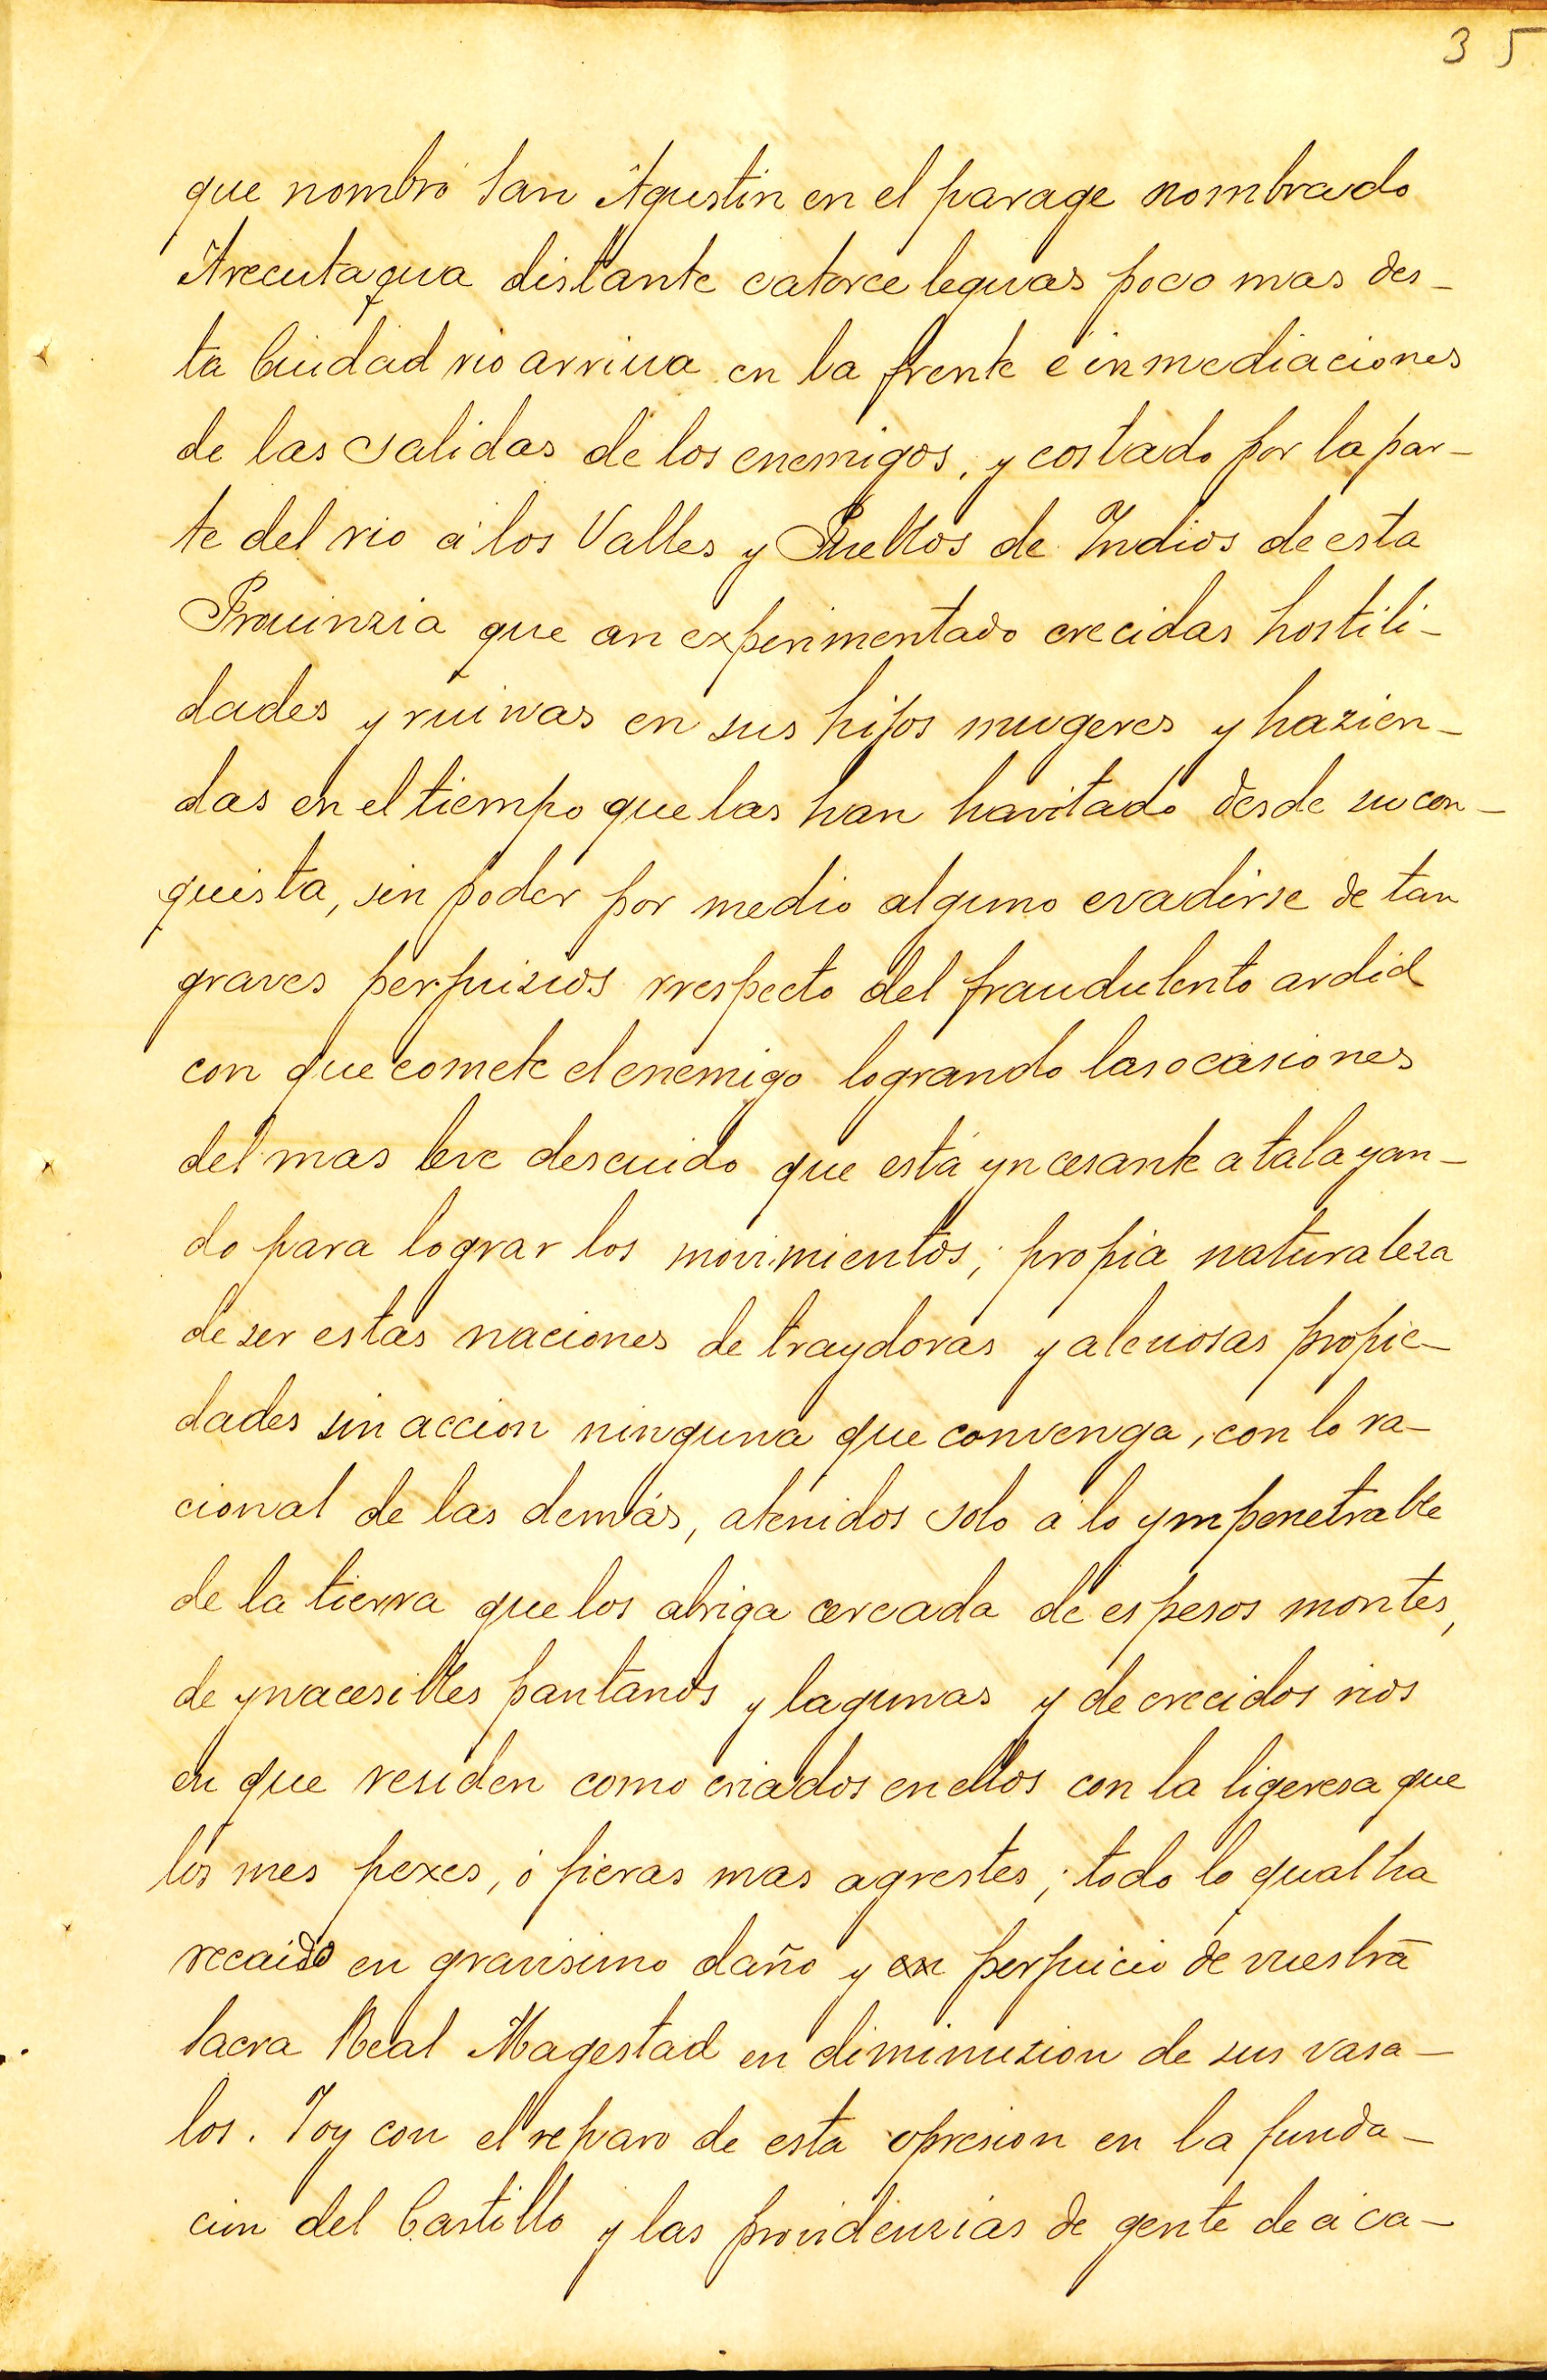 35
que nombró San Agustin en el parage nombrado
Arecutaqua distante catorce leguas poco mas des-
ta Ciudad rio arriua en la frente é inmediaciones
de las salidas de los enemigos, y costado por la par-
te del rio á los Valles y Pueblos de Indios de esta
Prouinzia que an experimentado crecidas hostili-
dades y ruinas en sus hijos mugeres y hazien-
das en el tiempo que las han havitado desde su con-
quista, sin poder por medio alguno evadirse de tan
graves perjuizios rrespecto del fraudulento ardid
con que comete el enemigo logrando las ocasiones
del mas leve descuido que está yncesante atalayan-
do para lograr los movimientos; propia naturaleza
de ser estas naciones de traydoras y aleuosas propie-
dades sin accion ninguna que convenga, con lo ra-
cional de las demás, atenidos solo á lo ympenetrable
de la tierra que los abriga cercada de espesos montes,
de ynacesibles pantanos y lagunas y de crecidos rios
en que residen como criados en ellos con la ligeresa que
los mes pexes, ó fieras mas agrestes; todo lo qual ha
recaido en grauisimo daño y en perjuicio de vuestra
Sacra Real Magestad en diminuzion de sus vasa-
los. Ioy con el reparo de esta opresion en la funda-
cion del Castillo y las prouidenzias de gente de á ca-